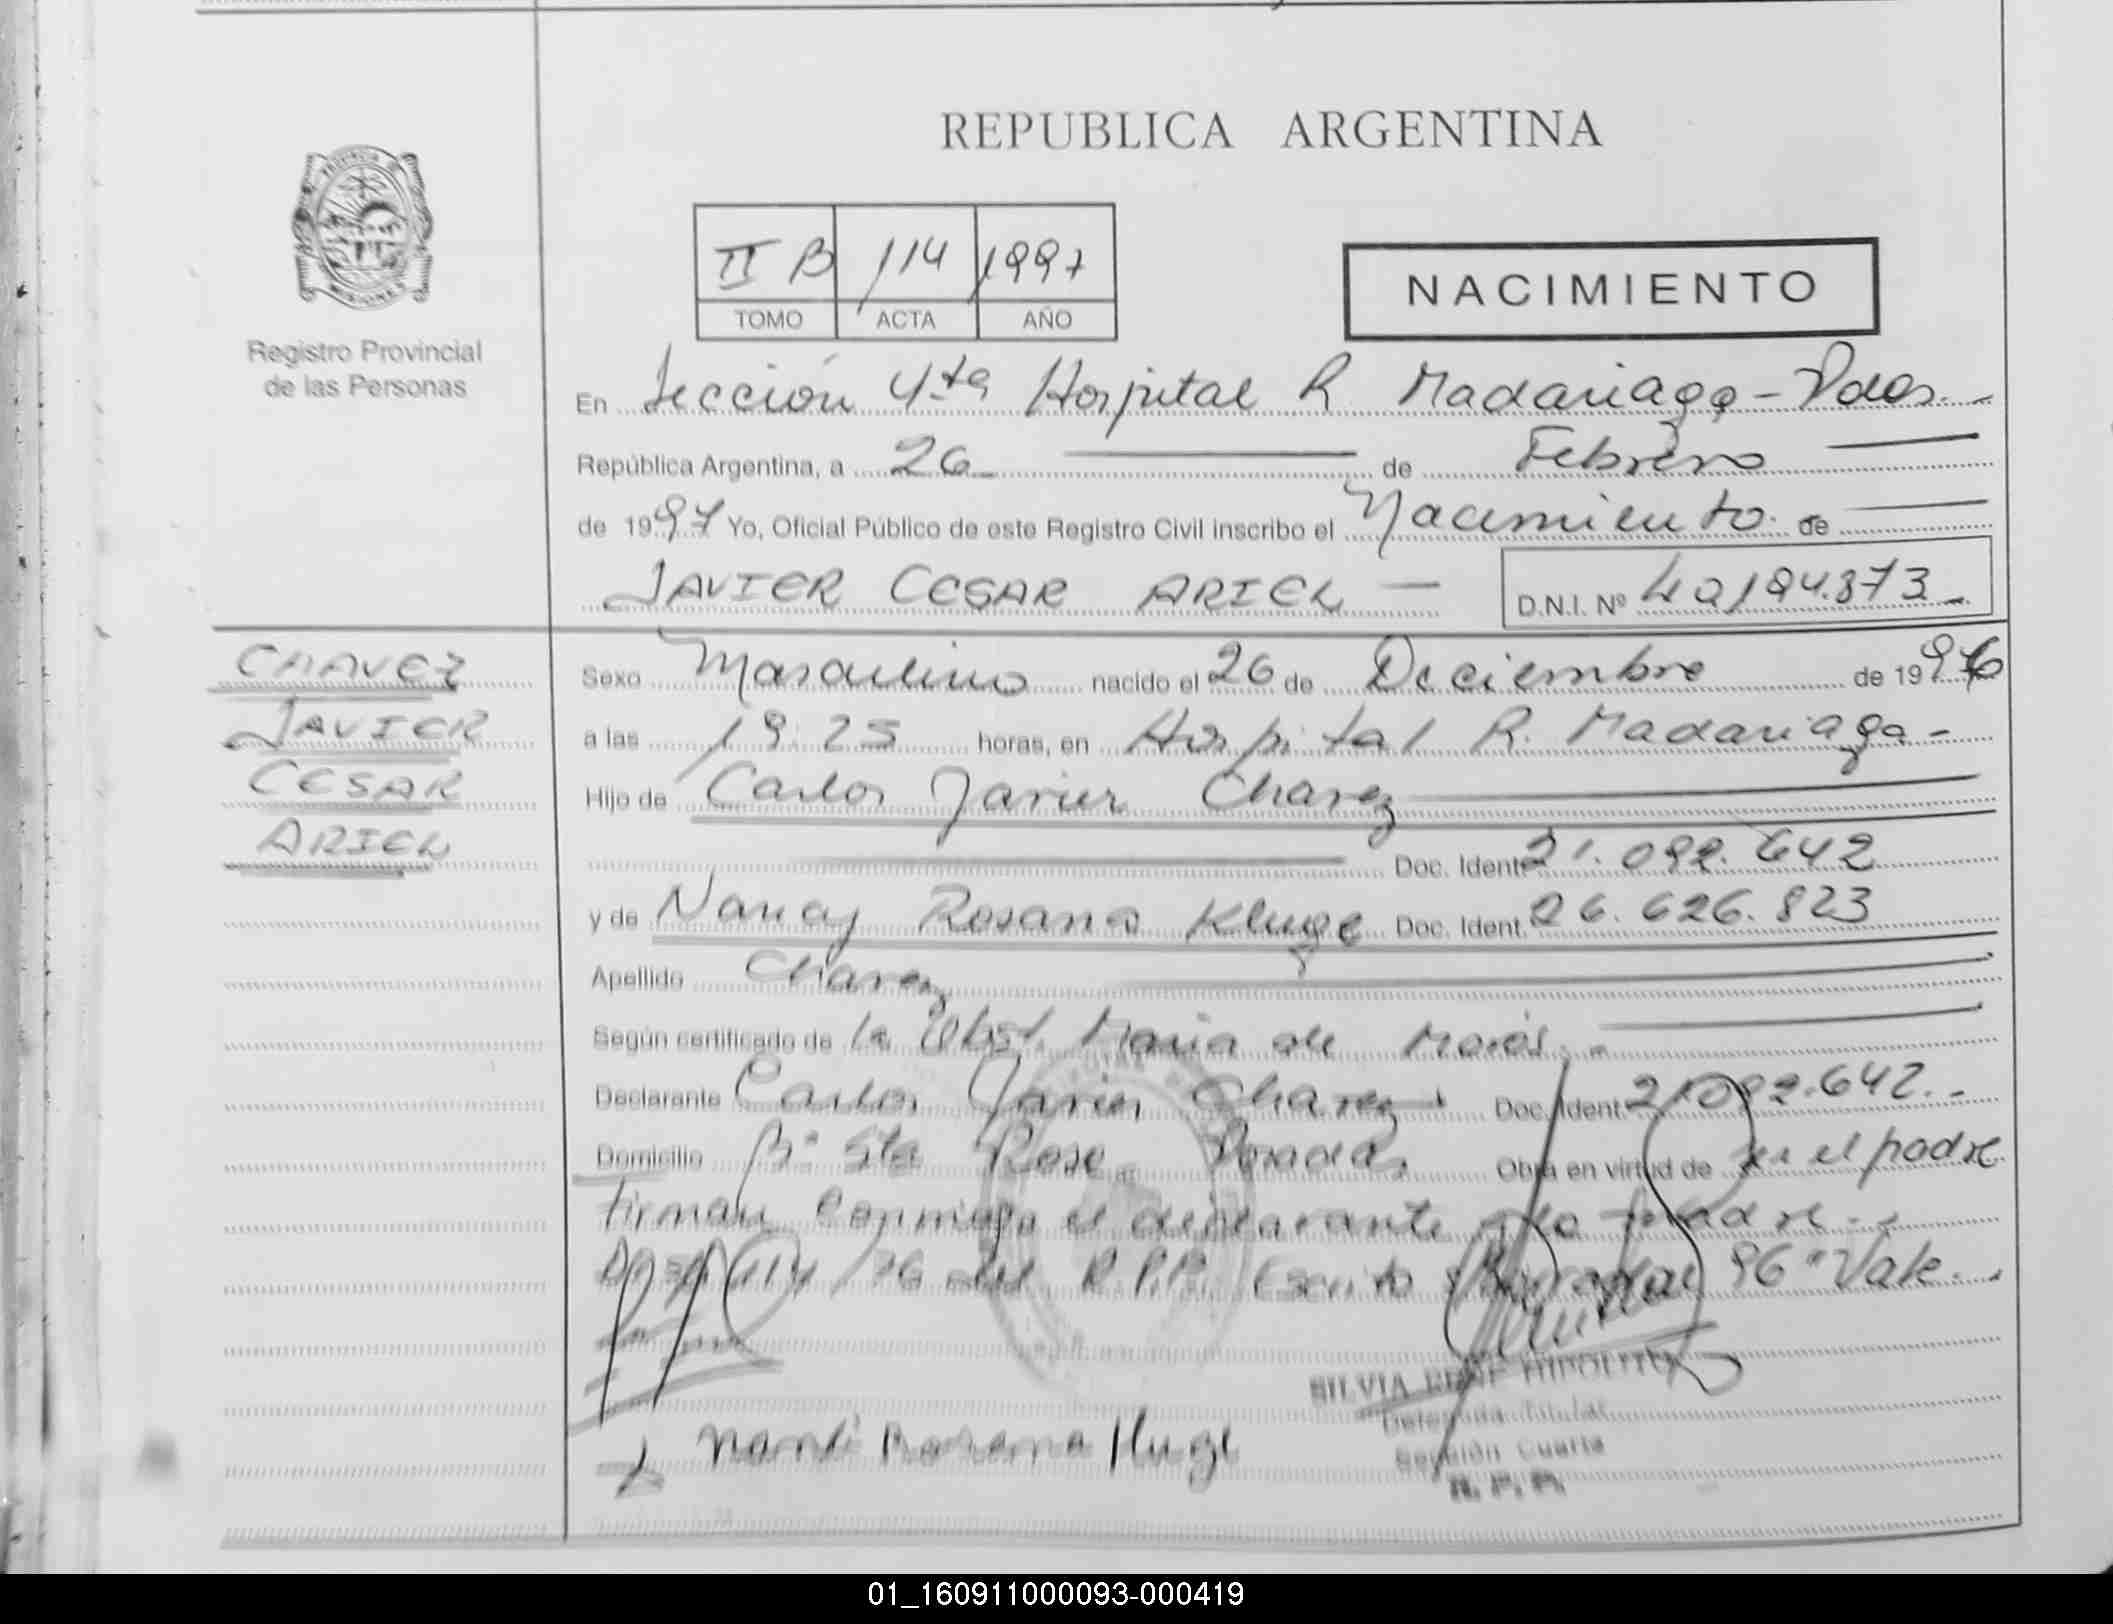 REPUBLICA ARGENTINA
PROVINCIA DE
MISIONES
Registro Provincial
de las Personas
II B 114 1997
TOMO ACTA AÑO
NACIMIENTO
En Sección 4ta Hospital R Madariaga - Pdas. -
República Argentina, a 26 de Febrero
de 1997 Yo, Oficial Público de este Registro Civil inscribo el Nacimiento de
JAVIER CESAR ARIEL — D.N.I. Nº 40194.873
CHAVEZ
JAVIER
CESAR
ARIEL
Sexo Masculino nacido el 26 de Deciembre de 1996
a las 19:25 horas, en Hospital R. Madariaga -
Hijo de Carlos Javier Chavez
Doc. Ident. 21.092.642
y de Nancy Rosana Kluge Doc. Ident. 26.626.823
Apellido Chavez
Según certificado de la Obst. Maria de
Declarante Carlos Javier Chavez Doc. Ident. 21092.642. -
Domicilio Bº Sta Rosa Posadas Obra en virtud de ser el padre
firman conmigo el declarante y la madre. -
del R.P.P. Escrito 96" Vale. -
SILVIA HIPOLITO
Delegada Titular
Sección Cuarta
R. P. P.
01_160911000093-000419